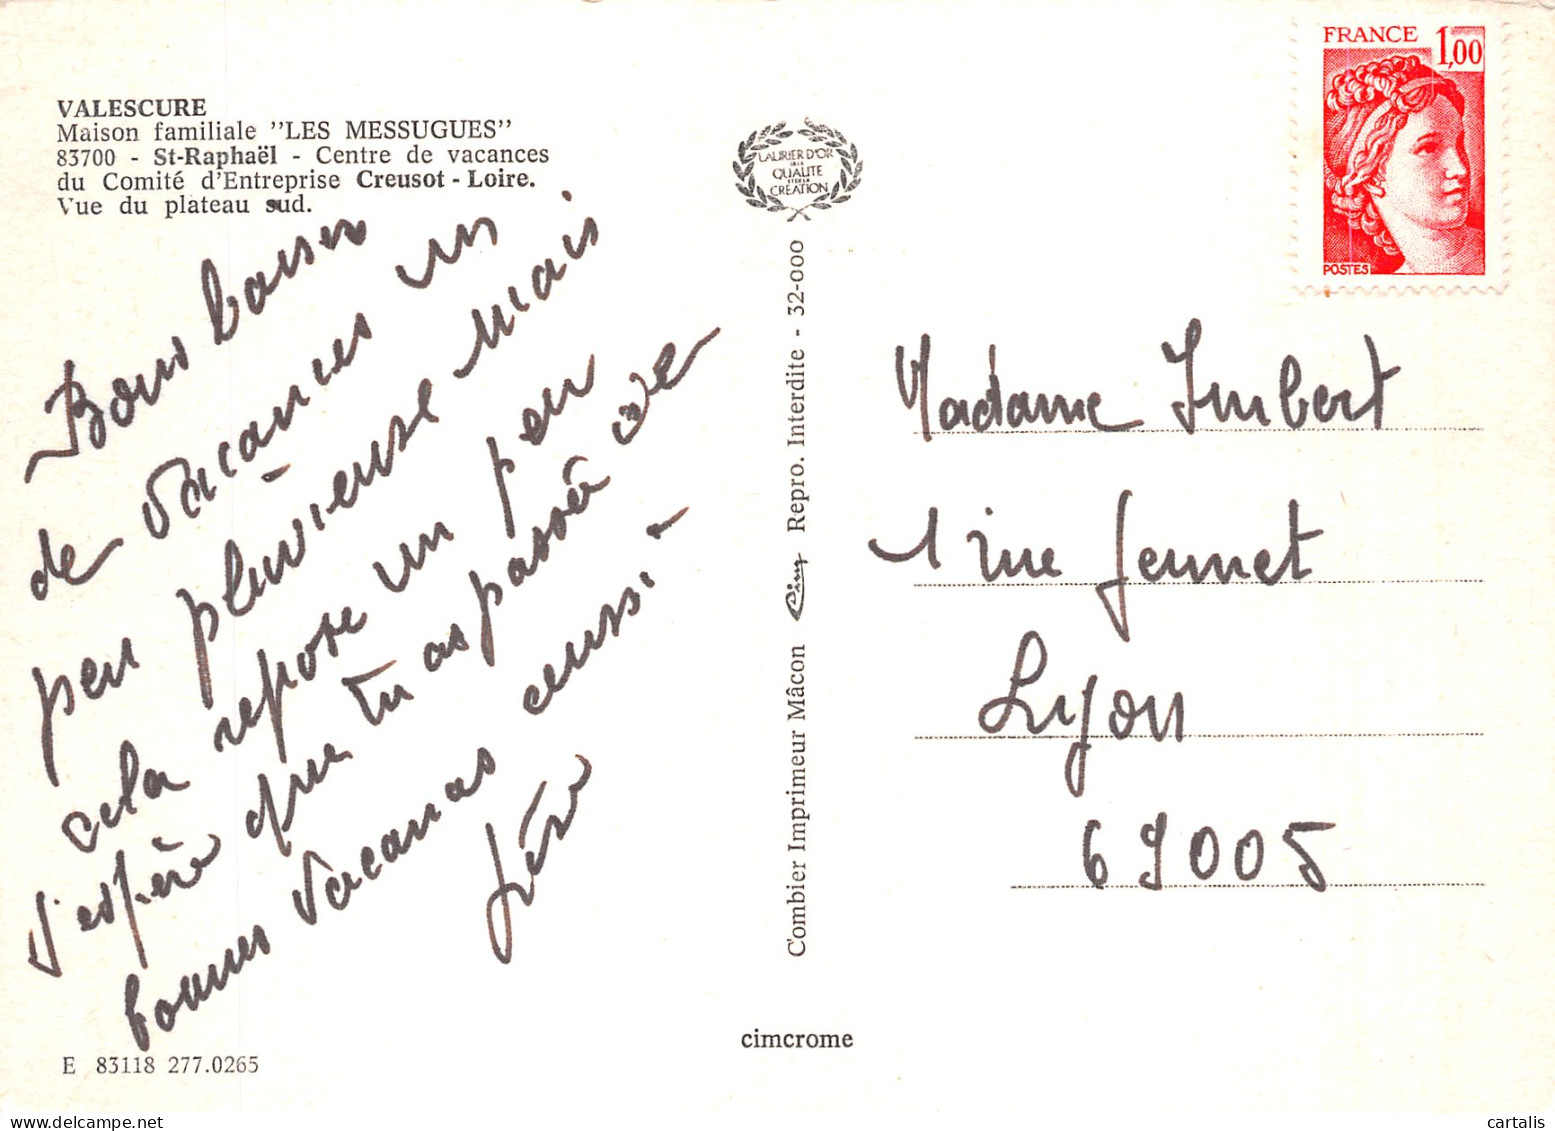 VALESCURE
Maison familiale "LES MESSUGUES"
83700 - St-Raphaël - Centre de vacances
du Comité d'Entreprise Creusot-Loire.
Vue du plateau sud.
Bons baisers
de vacances un
peu pluvieuse mais
cela repose un peu
j'espère que tu as passée de
bonnes vacances aussi
LAURIER D'OR
DE LA
QUALITE
ET DE LA
CREATION
Combier Imprimeur Mâcon Cim Repro. Interdite - 32-000
FRANCE 1,00
POSTES
Madame Imbert
1 rue Jeunet
Lyon
69005
cimcrome
E 83118 277.0265
cartalis